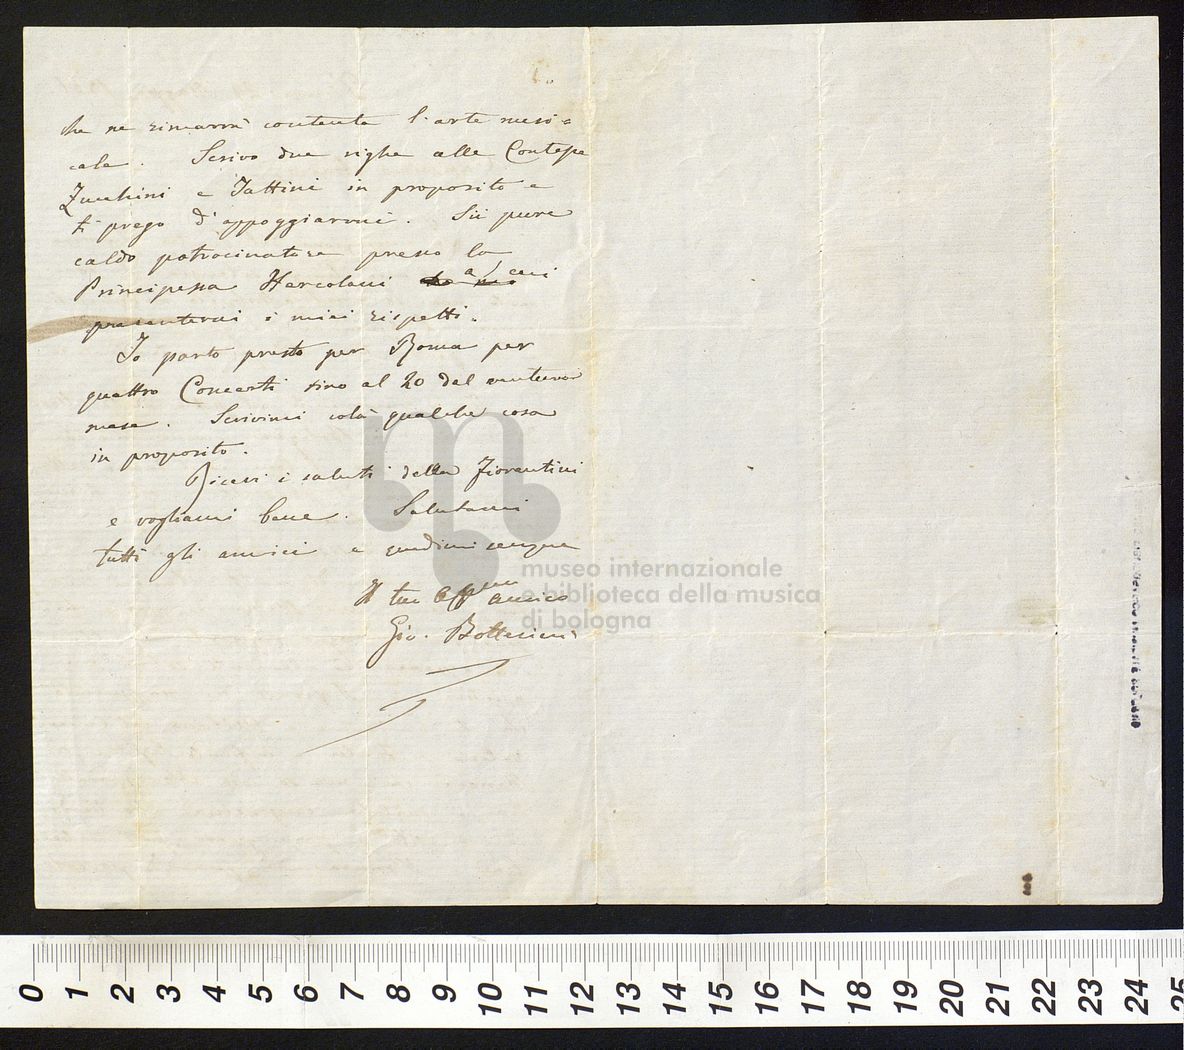 che ne rimarrà contenta l'arte musi=
cale. Scrivo due righe alle Contesse
Zucchini e Tattini in proposito e
ti prego d'appoggiarmi. Sii pure
caldo patrocinatore presso la
Principessa Hercolani a cui
presenterai i miei rispetti.
Io parto presto per Roma per
quattro Concerti sino al 20 del venturo
mese. Scrivimi colà qualche cosa
in proposito.
Ricevi i saluti della Fiorentini
e vogliami bene. Salutami
tutti gli amici e credimi sempre
Il tuo Affmo amico
Gio. Bottesini
museo internazionale
e biblioteca della musica
di bologna
0 1 2 3 4 5 6 7 8 9 10 11 12 13 14 15 16 17 18 19 20 21 22 23 24 25